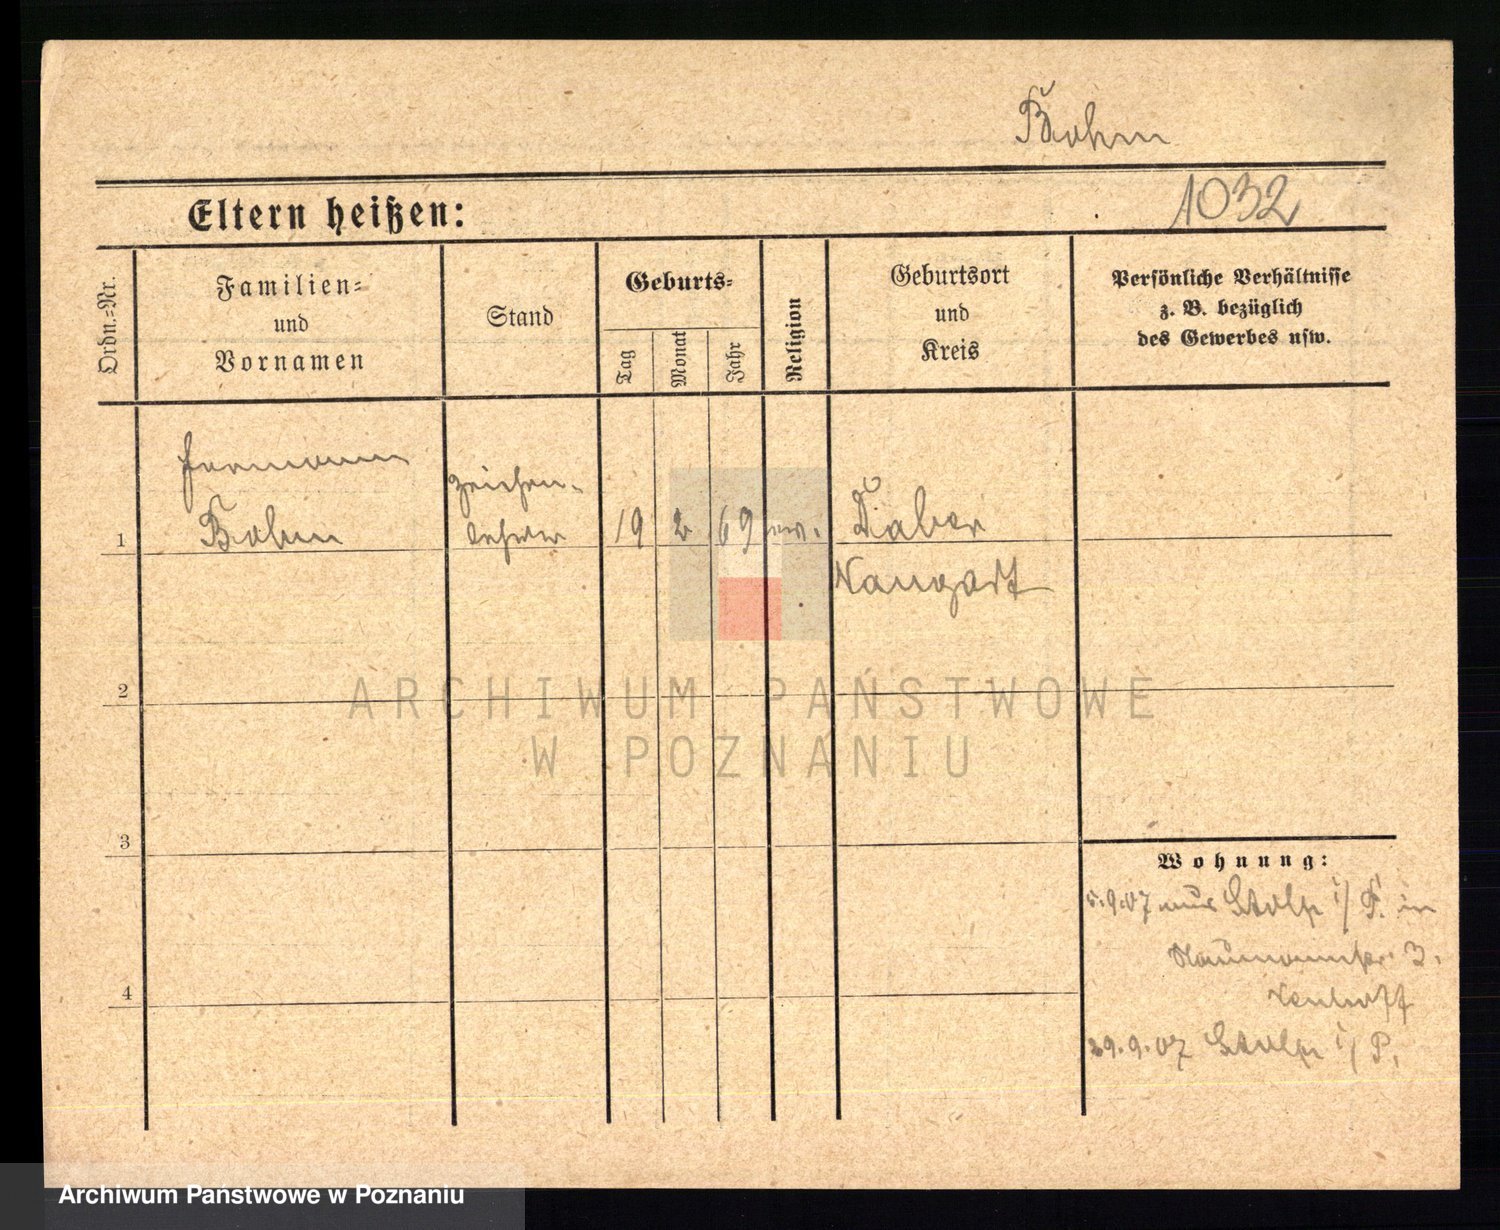 Bohm
Eltern heißen:
1032
Ordn.-Nr.
Familien-
und
Vornamen
Stand
Geburts-
Tag
Monat
Jahr
Religion
Geburtsort
und
Kreis
Persönliche Verhältnisse
z. B. bezüglich
des Gewerbes usw.
Hermann
Zeichen-
1 Bohm lehrer 19 2 69 ev. Daber
Naugard
2
ARCHIWUM PAŃSTWOWE
W POZNANIU
3
Wohnung:
5.9.07 aus Stolp i/P. in
Naumannstr. 3.
4
29.9.07 Stolp i/P.
Archiwum Państwowe w Poznaniu